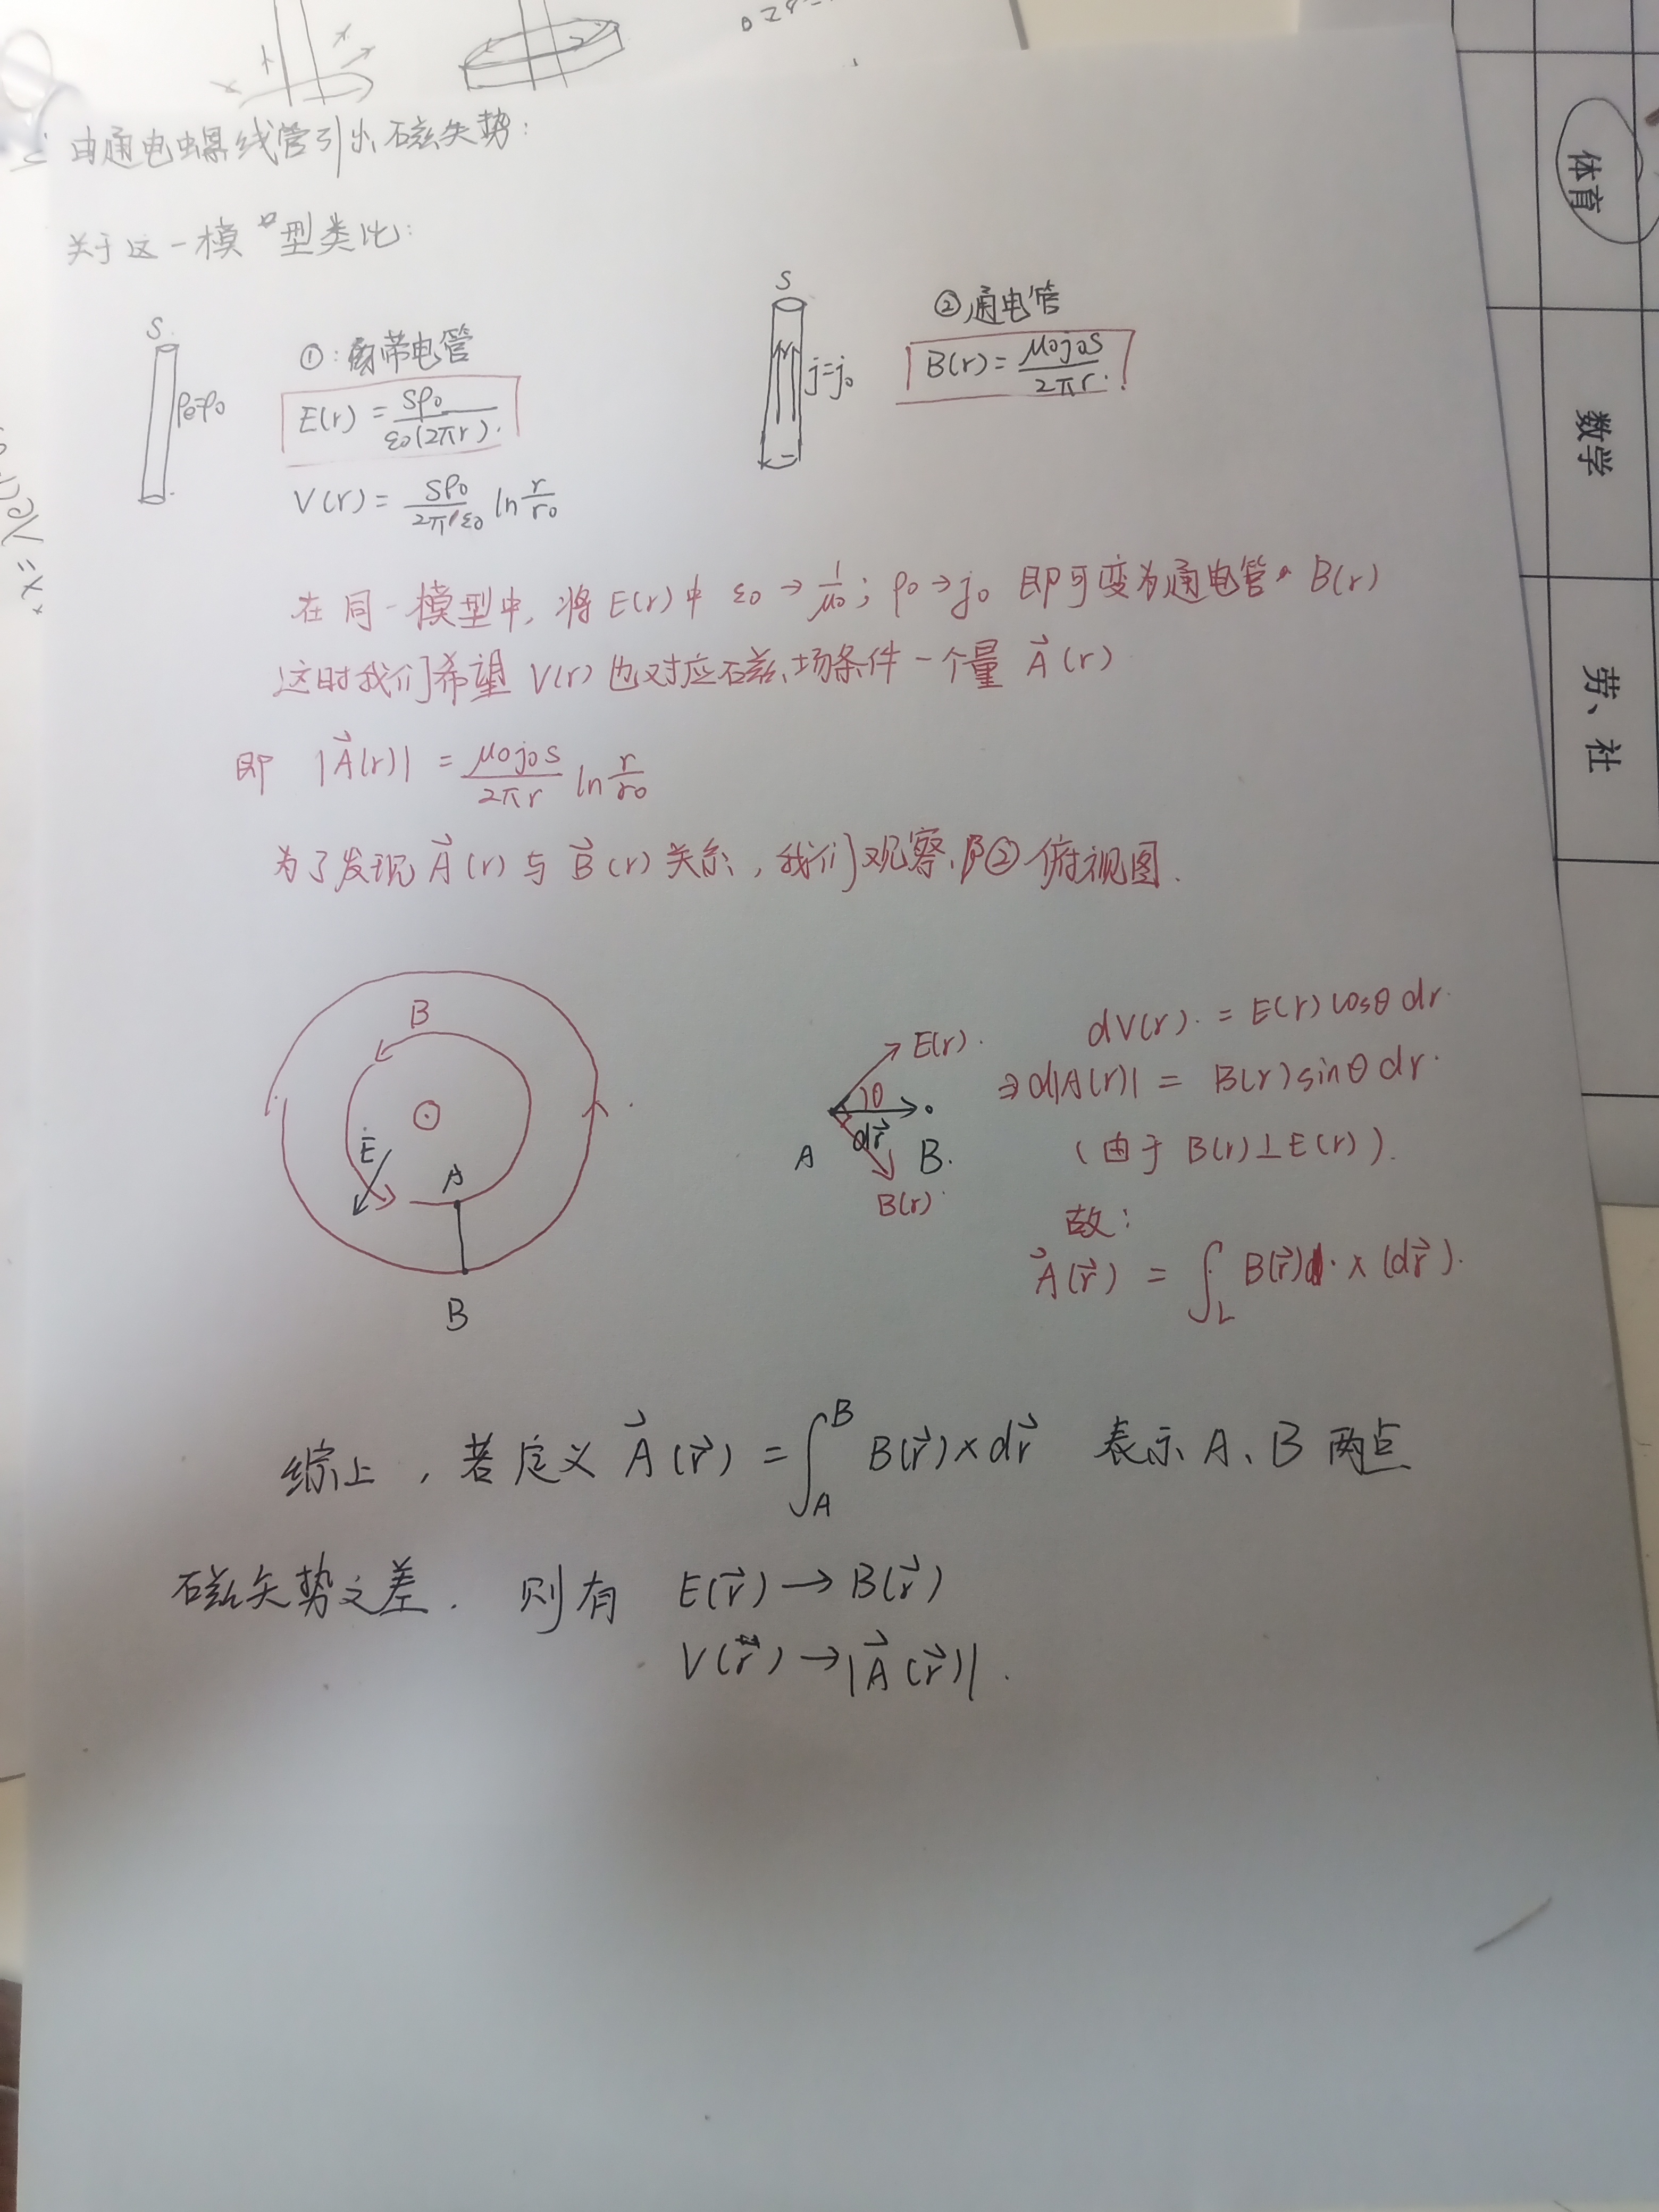 由通电螺线管引出磁矢势:
关于这一模型类比:
S
ρe=ρ0
①: 带电管
E(r) = Sρ0 / ε0(2πr).
V(r) = Sρ0 / 2πε0 ln r/r0
S
j=j0
②通电管
B(r) = μ0j0S / 2πr.
在同一模型中, 将 E(r)中 ε0 → 1/μ0 ; ρ0 → j0 即可变为通电管 B(r)
这时我们希望 V(r) 也对应磁场条件一个量 A⃗(r)
即 |A⃗(r)| = μ0j0S / 2πr ln r/r0
为了发现 A⃗(r) 与 B⃗(r) 关系, 我们观察 ② 俯视图.
B
E⃗
A
B
E(r).
θ
dr⃗
A
B.
B(r)
dV(r). = E(r) cosθ dr.
⇒ d|A(r)| = B(r) sinθ dr.
(由于 B(r)⊥E(r)).
故:
A⃗(r⃗) = ∫L B(r⃗) × (dr⃗).
综上, 若定义 A⃗(r⃗) = ∫A^B B(r⃗)×dr⃗ 表示 A、B 两点
磁矢势之差. 则有 E(r⃗) → B(r⃗)
V(r⃗) → |A⃗(r⃗)|.
体育
数学
劳、社